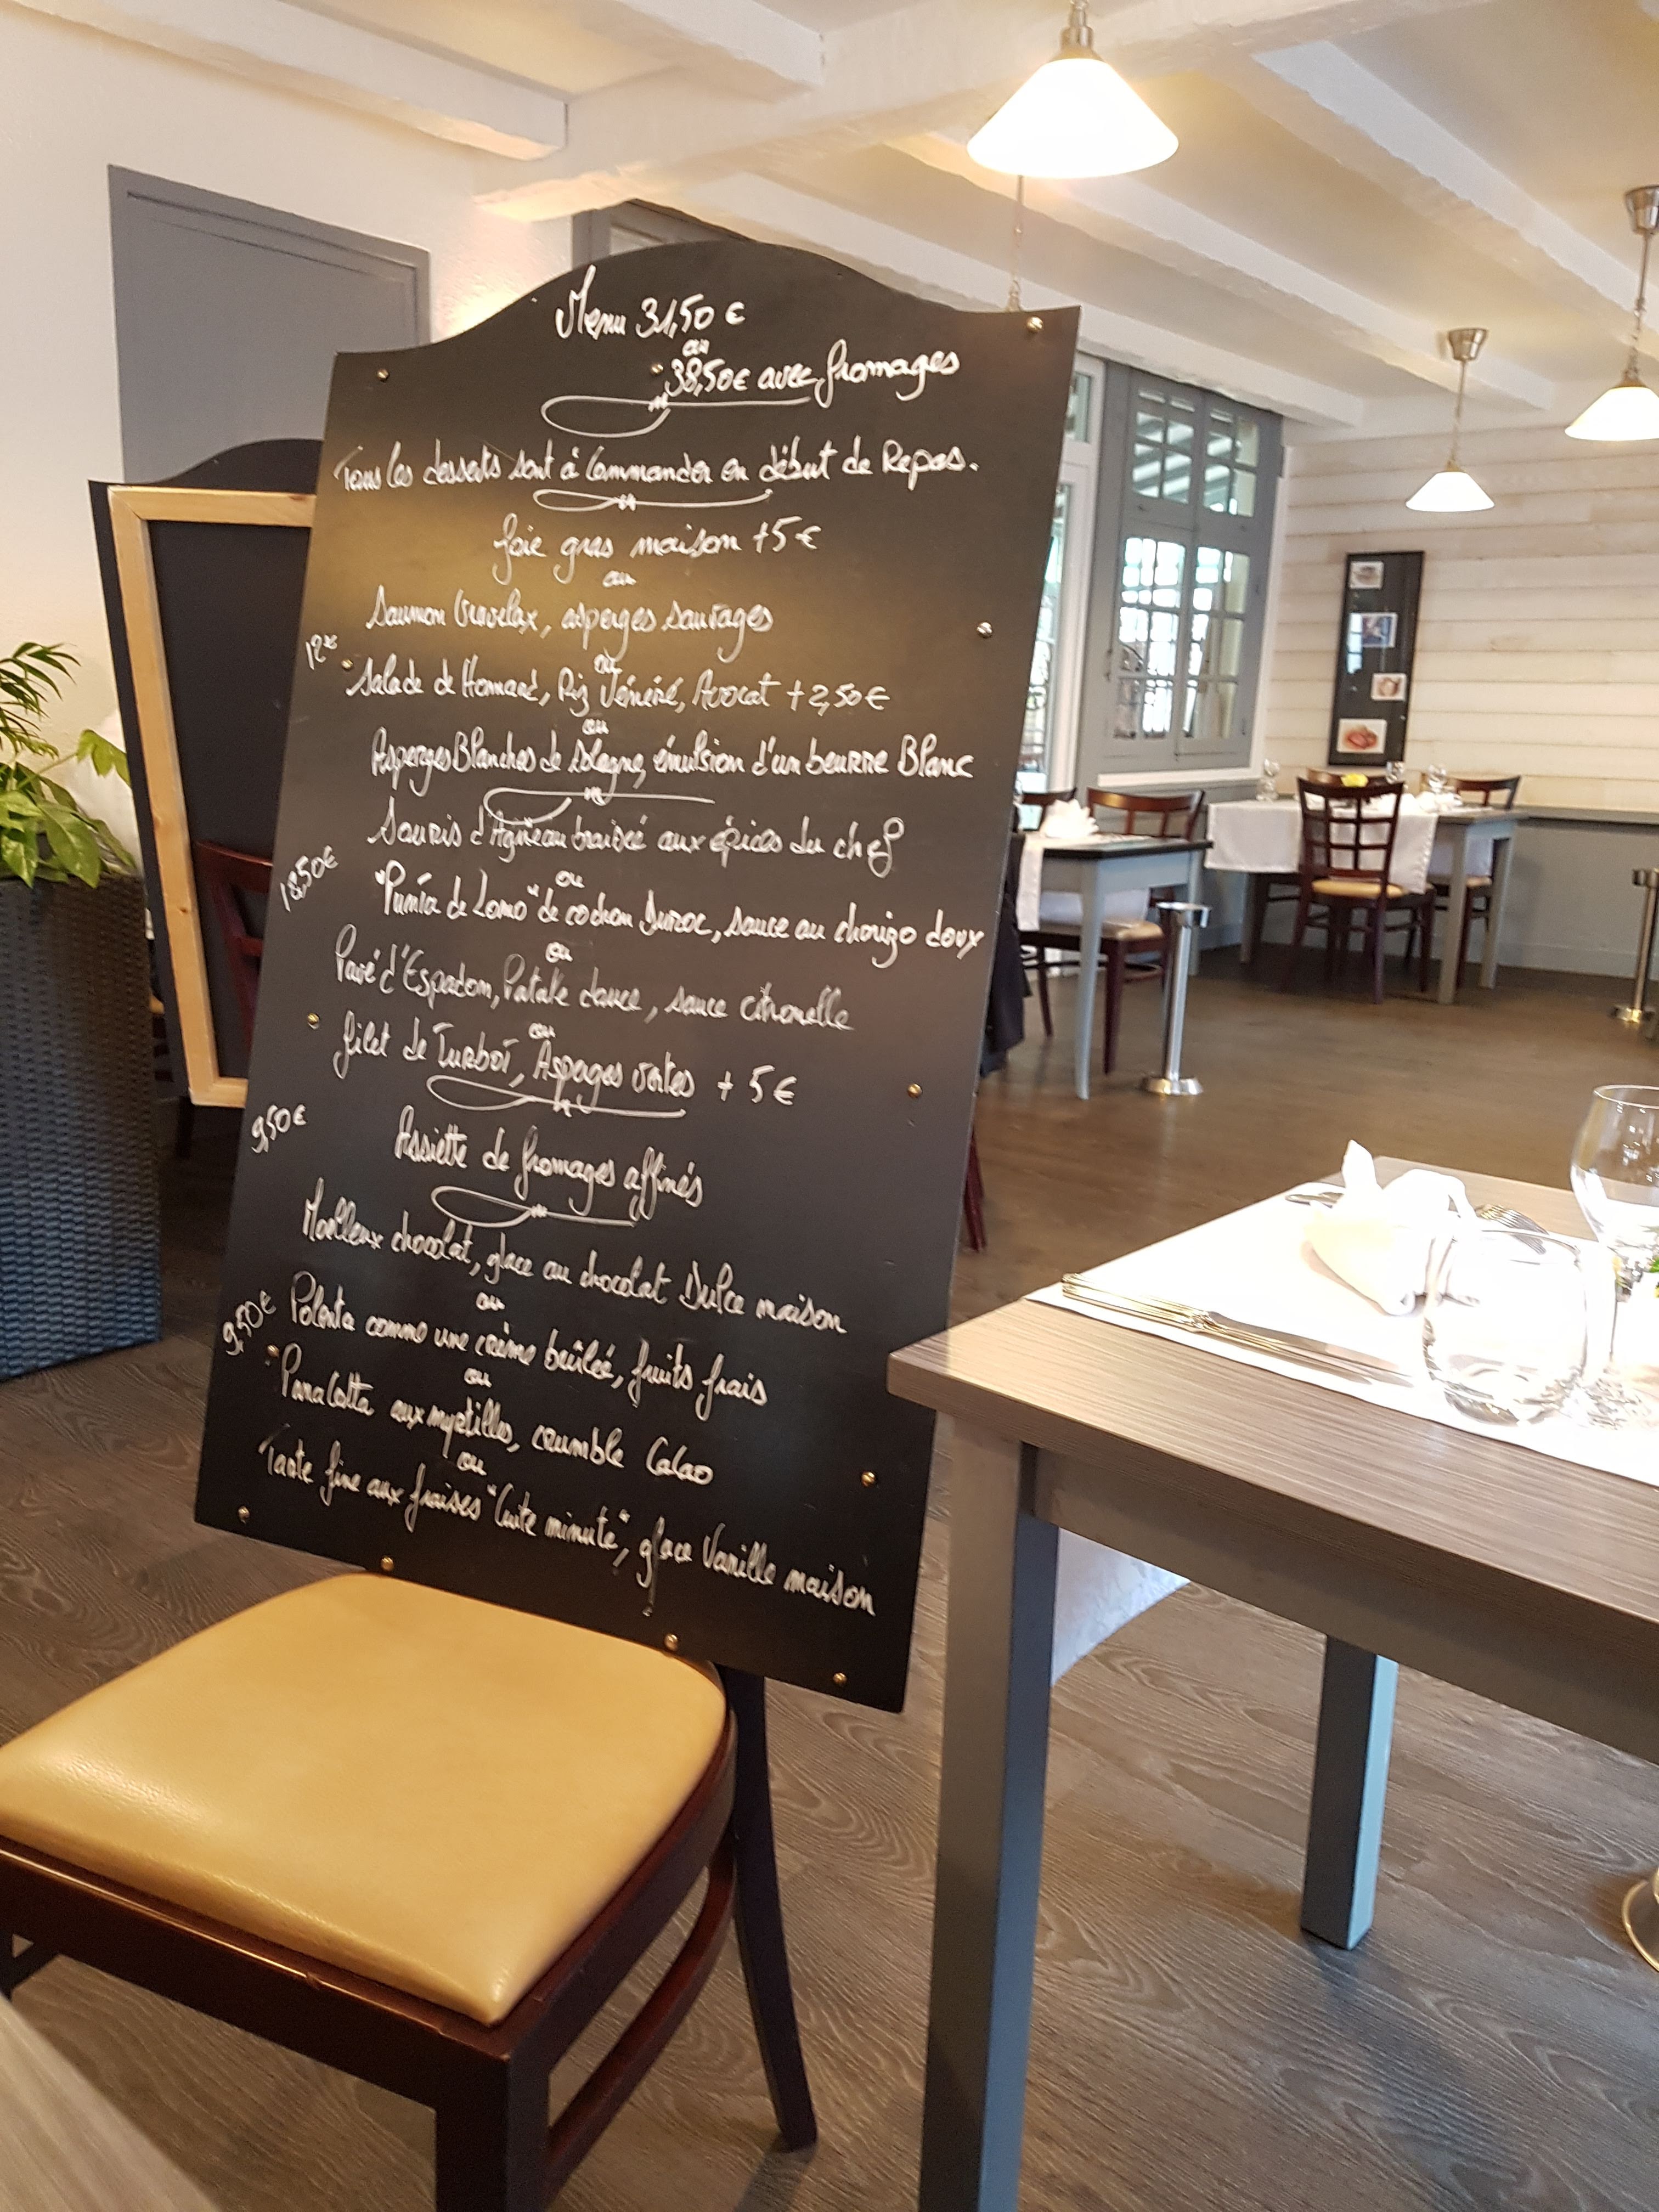 Menu 31,50 €
ou
38,50€ avec fromages
Tous les desserts sont à Commander en début de Repas.
foie gras maison +5€
ou
Saumon Gravelax, asperges sauvages
ou
12€
Salade de Homard, Riz Vénéré, Avocat +2,50€
ou
Asperges Blanches de Sologne, émulsion d'un beurre Blanc
Souris d'Agneau braisé aux épices du chef
18,50€
ou
"Punta de Lomo" de cochon Duroc, sauce au chorizo doux
ou
Pavé d'Espadon, Patate douce, sauce citronelle
ou
filet de Turbot, Asperges vertes + 5€
9,50€
Assiette de fromages affinés
Moelleux chocolat, glace au chocolat Dulce maison
ou
9,50€
Polenta comme une crème brûlée, fruits frais
ou
Panacotta aux myrtilles, crumble Cacao
ou
Tarte fine aux fraises "Cuite minute", glace Vanille maison